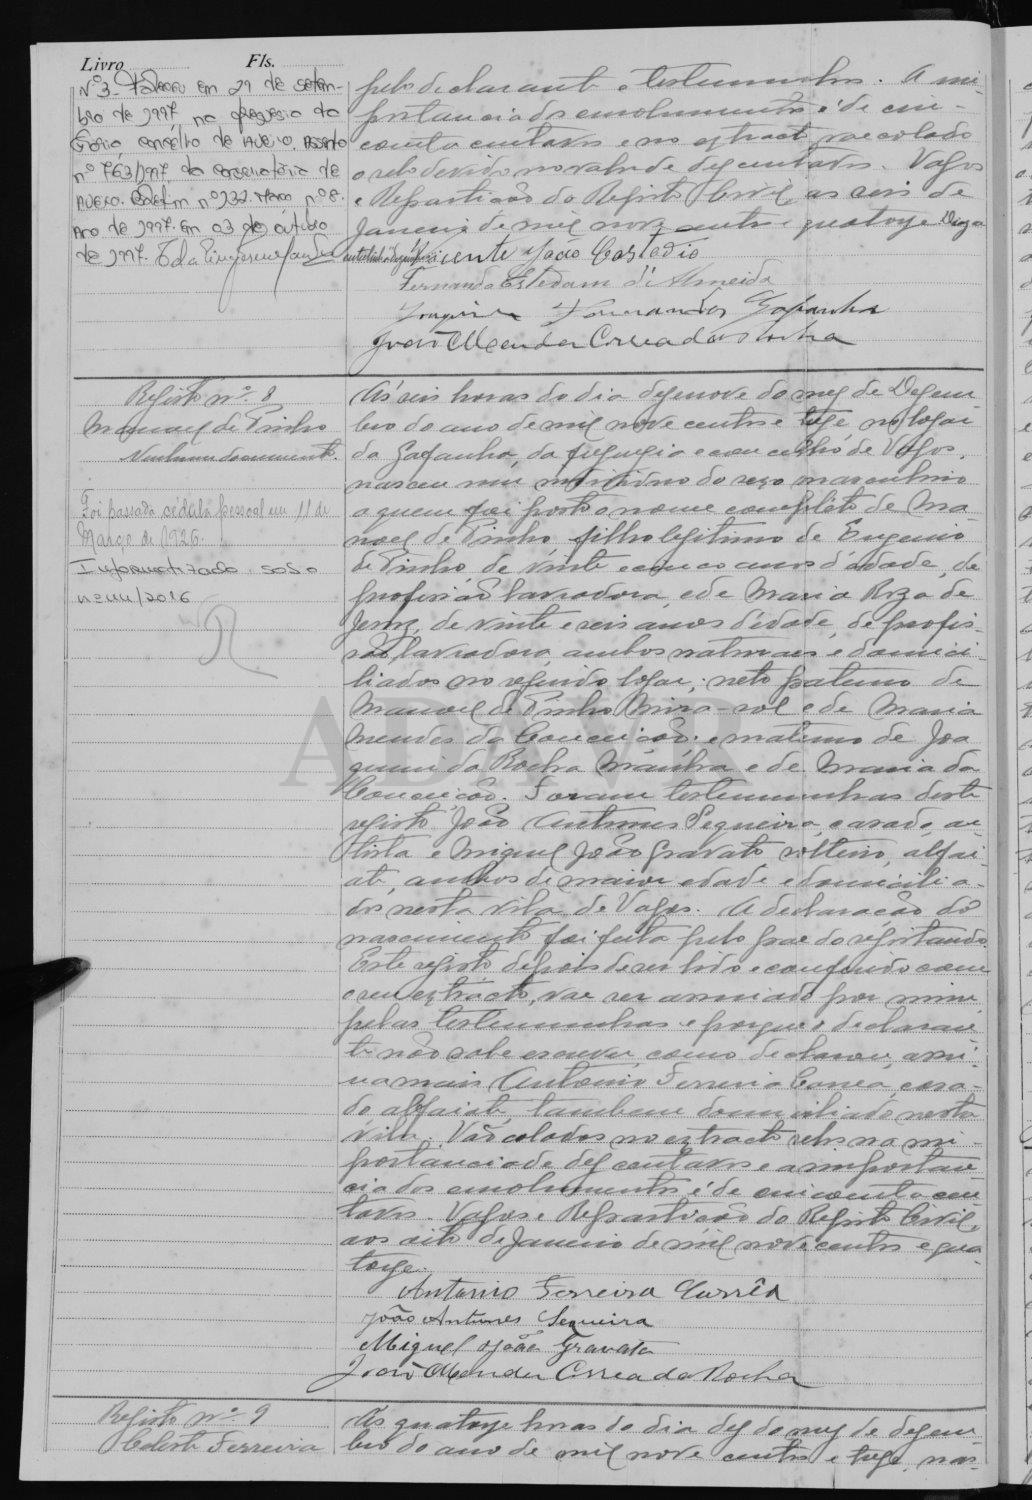 Livro Fls.
Nº 3. Faleceu em 29 de setem-
bro de 1997, na freguesia da
Glória, concelho de Aveiro. Assento
nº 763/1997 da conservatória de
Aveiro. Boletim nº 232. Maço nº 8.
Ano de 1997. Em 03 de outubro
de 1997.
pelo declarante e testemunhas. A im-
portancia dos emolumentos é de cin-
coenta centavos e no extracto vae colado
o selo devido no valor de dez centavos. Vagos
e Repartição do Registo Civil, aos seis de
Janeiro de mil nove centos e quatorze. Digo
Vicente João Castedio
Fernando Estevam d'Almeida
Joaquim Fernandes Gafanha
João Mendes Correa da Rocha
Registo nº 8
Manuel de Pinho
Nenhum documento.
Foi passada cédula pessoal em 11 de
Março de 1926.
Informatizado sob o
nº 44/2016
Ás seis horas do dia dezenove do mez de Dezem-
bro do ano de mil nove centos e treze, no logar
da Gafanha, da freguezia e concelho de Vagos,
nasceu um individuo do sexo masculino
a quem foi posto o nome completo de Ma-
noel de Pinho, filho legitimo de Eugenio
de Pinho, de vinte e cinco anos d'idade, de
profissão lavradora, e de Maria Roza de
Jesuz, de vinte e seis anos d'idade, de profis-
são lavradora, ambos naturaes e domici-
liados no referido logar; neto paterno de
Manoel de Pinho Mira-sol e de Maria
Mendes da Conceição; e materno de Joa-
quim da Rocha Manha e de Maria da
Conceição. Foram testemunhas deste
registo João Antunes Sequeira, casado, ar-
tista e Miguel João Gravato, solteiro, alfai-
ate, ambos de maior edade e domicilia-
dos nesta vila de Vagos. A declaração do
nascimento foi feita pelo pae do registando.
Este registo, depois de ser lido e conferido com
o seu extracto, vae ser assinado por mim,
pelas testemunhas e porque o declaran-
te não sabe escrever, como declarou, assi-
na mais Antonio Ferreira Correa, casa-
do, alfaiate, tambem domiciliado nesta
vila. Vão colados no extracto selos na im-
portancia de dez centavos e a importan-
cia dos emolumentos é de cincoenta cen-
tavos. Vagos e Repartição do Registo Civil,
aos oito de Janeiro de mil nove centos e qua-
torze.
Antonio Ferreira Corrêa
João Antunes Sequeira
Miguel João Gravato
João Mendes Correa da Rocha
Registo nº 9
Celeste Ferreira
Ás quatorze horas do dia dez do mez de dezem-
bro do ano de mil nove centos e treze, nas-